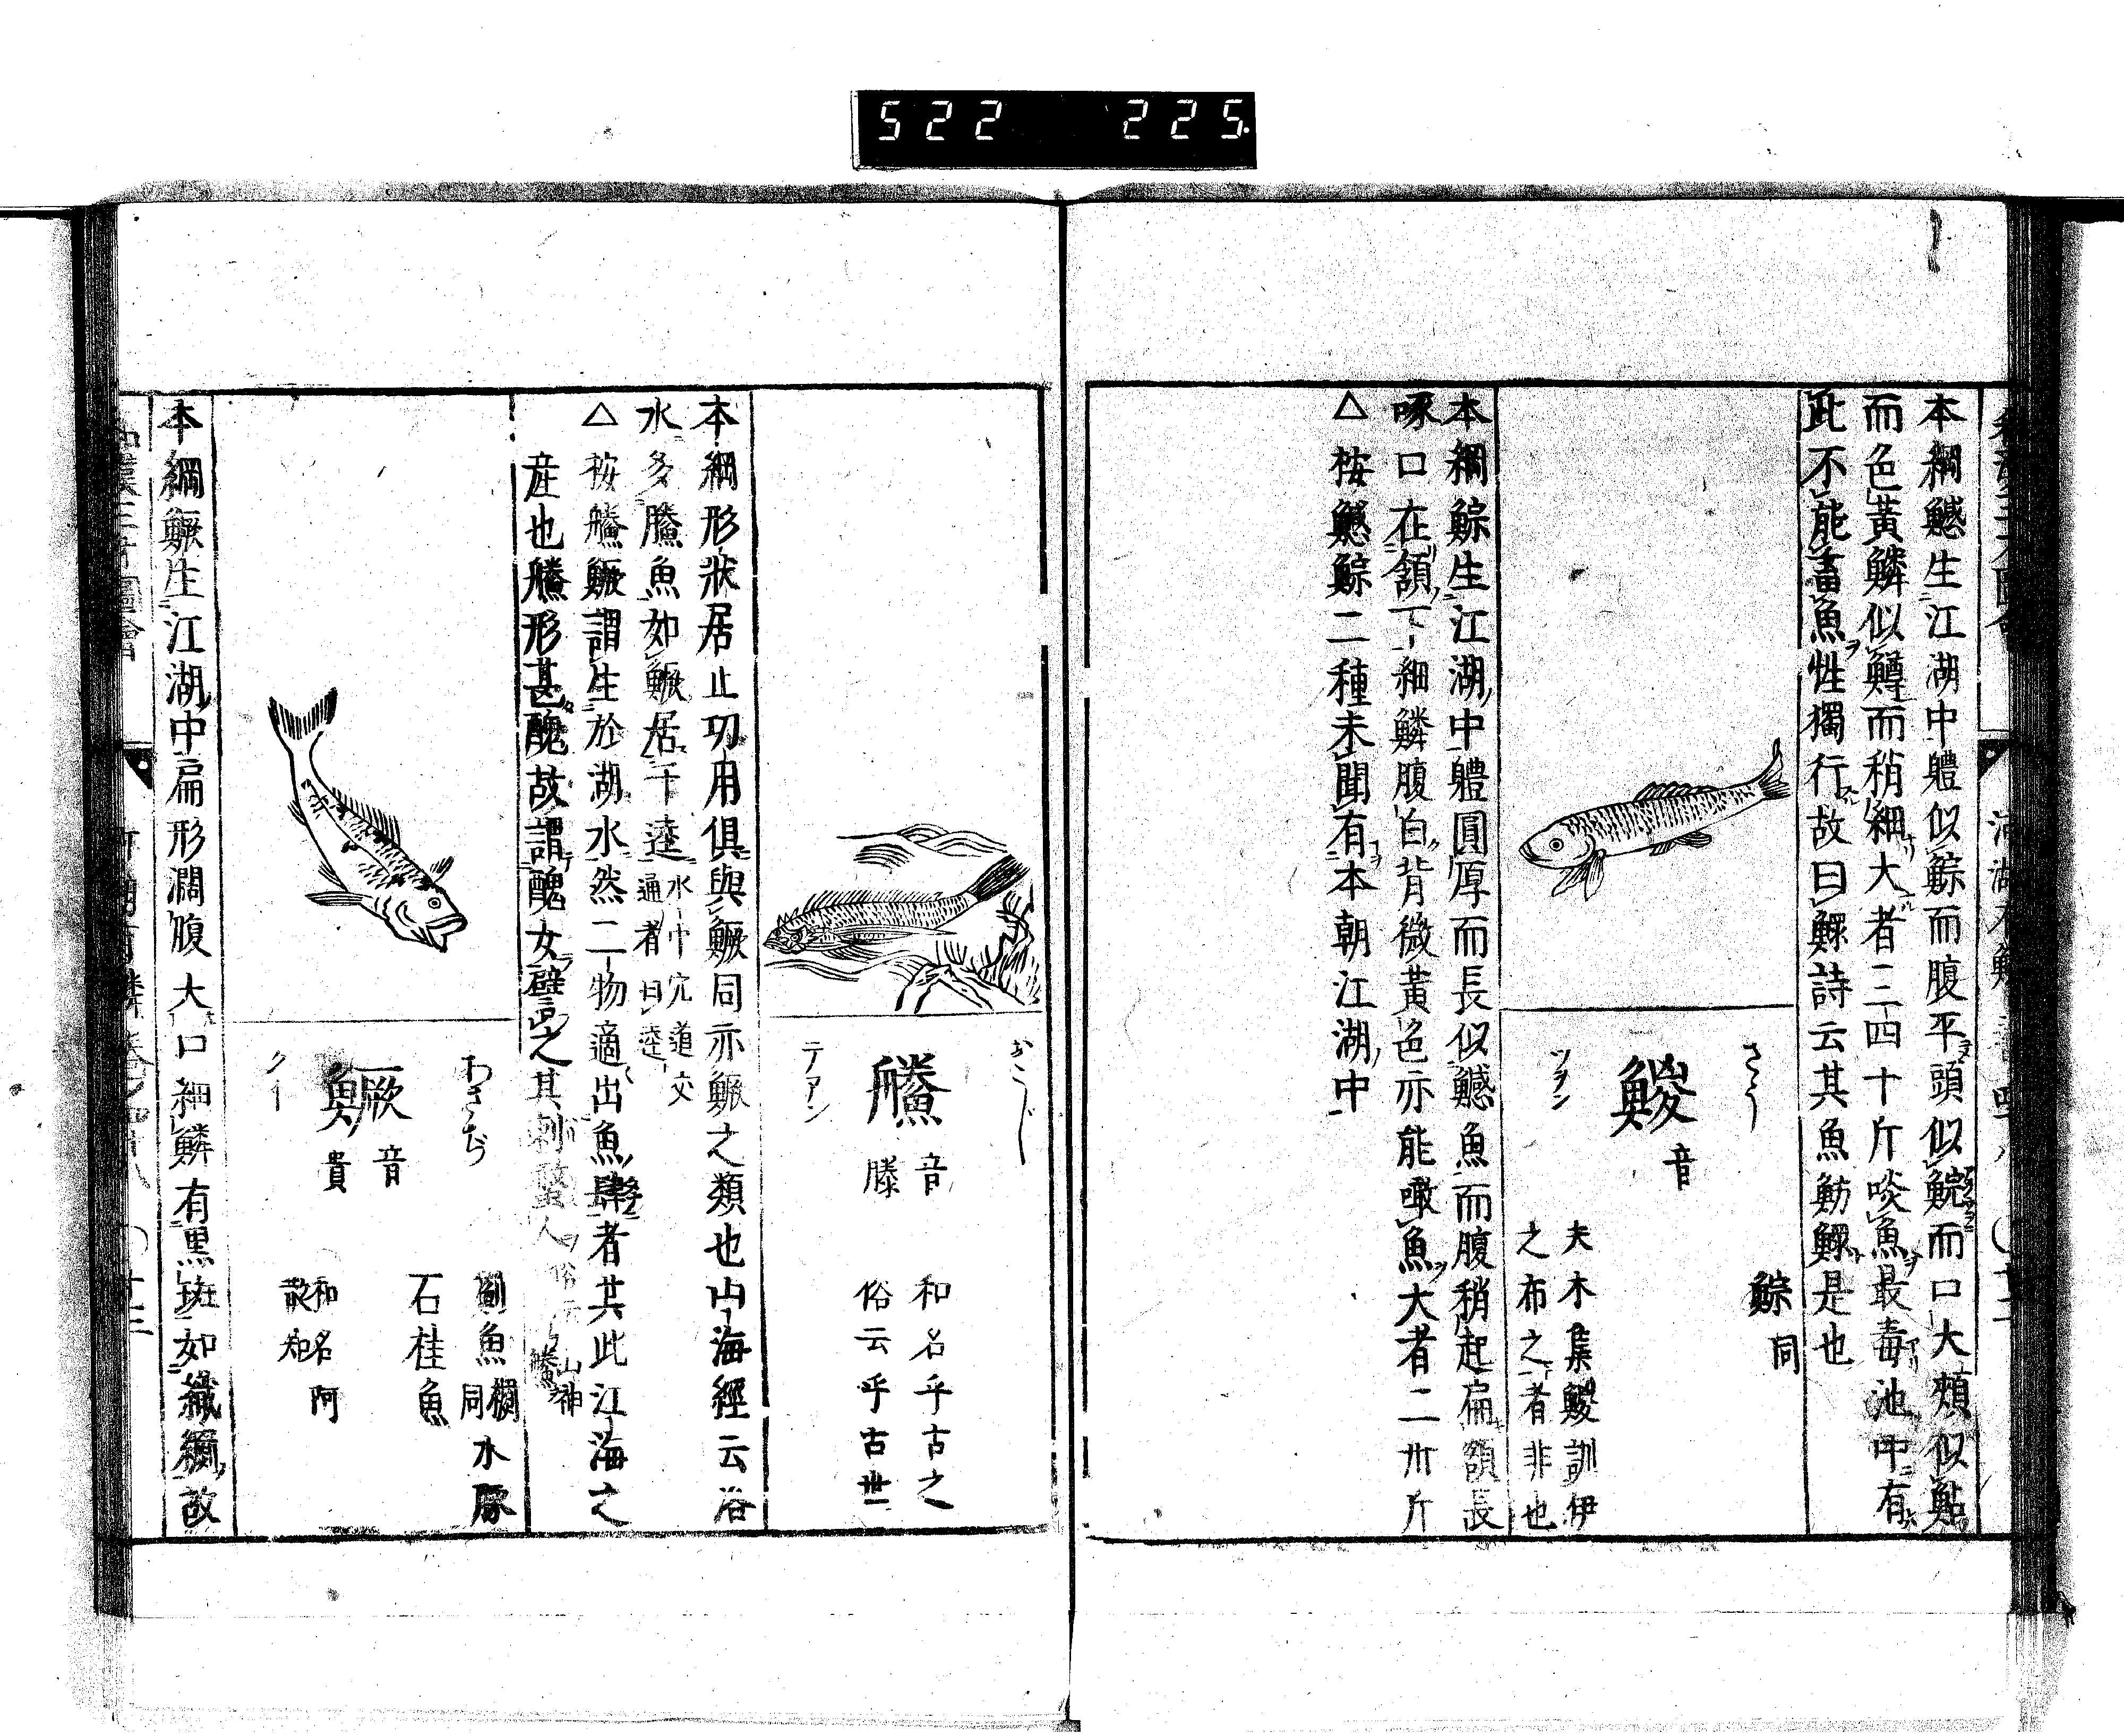 522 225
本綱鱤生江湖中體似鯮而腹平頭似鯇而口大頰似鮎
而色黃鱗似鱒而稍細大者三四十斤啖魚最毒池中有
此不能畜魚性獨行故曰鰥詩云其魚魴鰥是也
さう
鯼
音
ツヲン
鯮同
夫木集鯼訓伊
之布之者非也
本綱鯮生江湖中體圓厚而長似鱤魚而腹稍起扁額長
喙口在頷下細鱗腹白背微黃色亦能噉魚大者二卅斤
△按鱤鯮二種未聞有本朝江湖中
おこし
䲍
音
滕
テアン
和名乎古之
俗云乎古世
本綱形狀居止功用俱與鱖同亦鱖之類也山海經云洛
水多䲍魚如鱖居于逵水中穴道交
通者曰逵
△按䲍鱖謂生於湖水然二物適出魚肆者其此江海之
產也䲍形甚醜故謂醜女譬之其刺螫人
わさち
鱖
音
貴
クイ
罽魚
同
水豚
石桂魚
和名阿
散知
本綱鱖生江湖中扁形濶腹大口細鱗有黑斑如織纈故